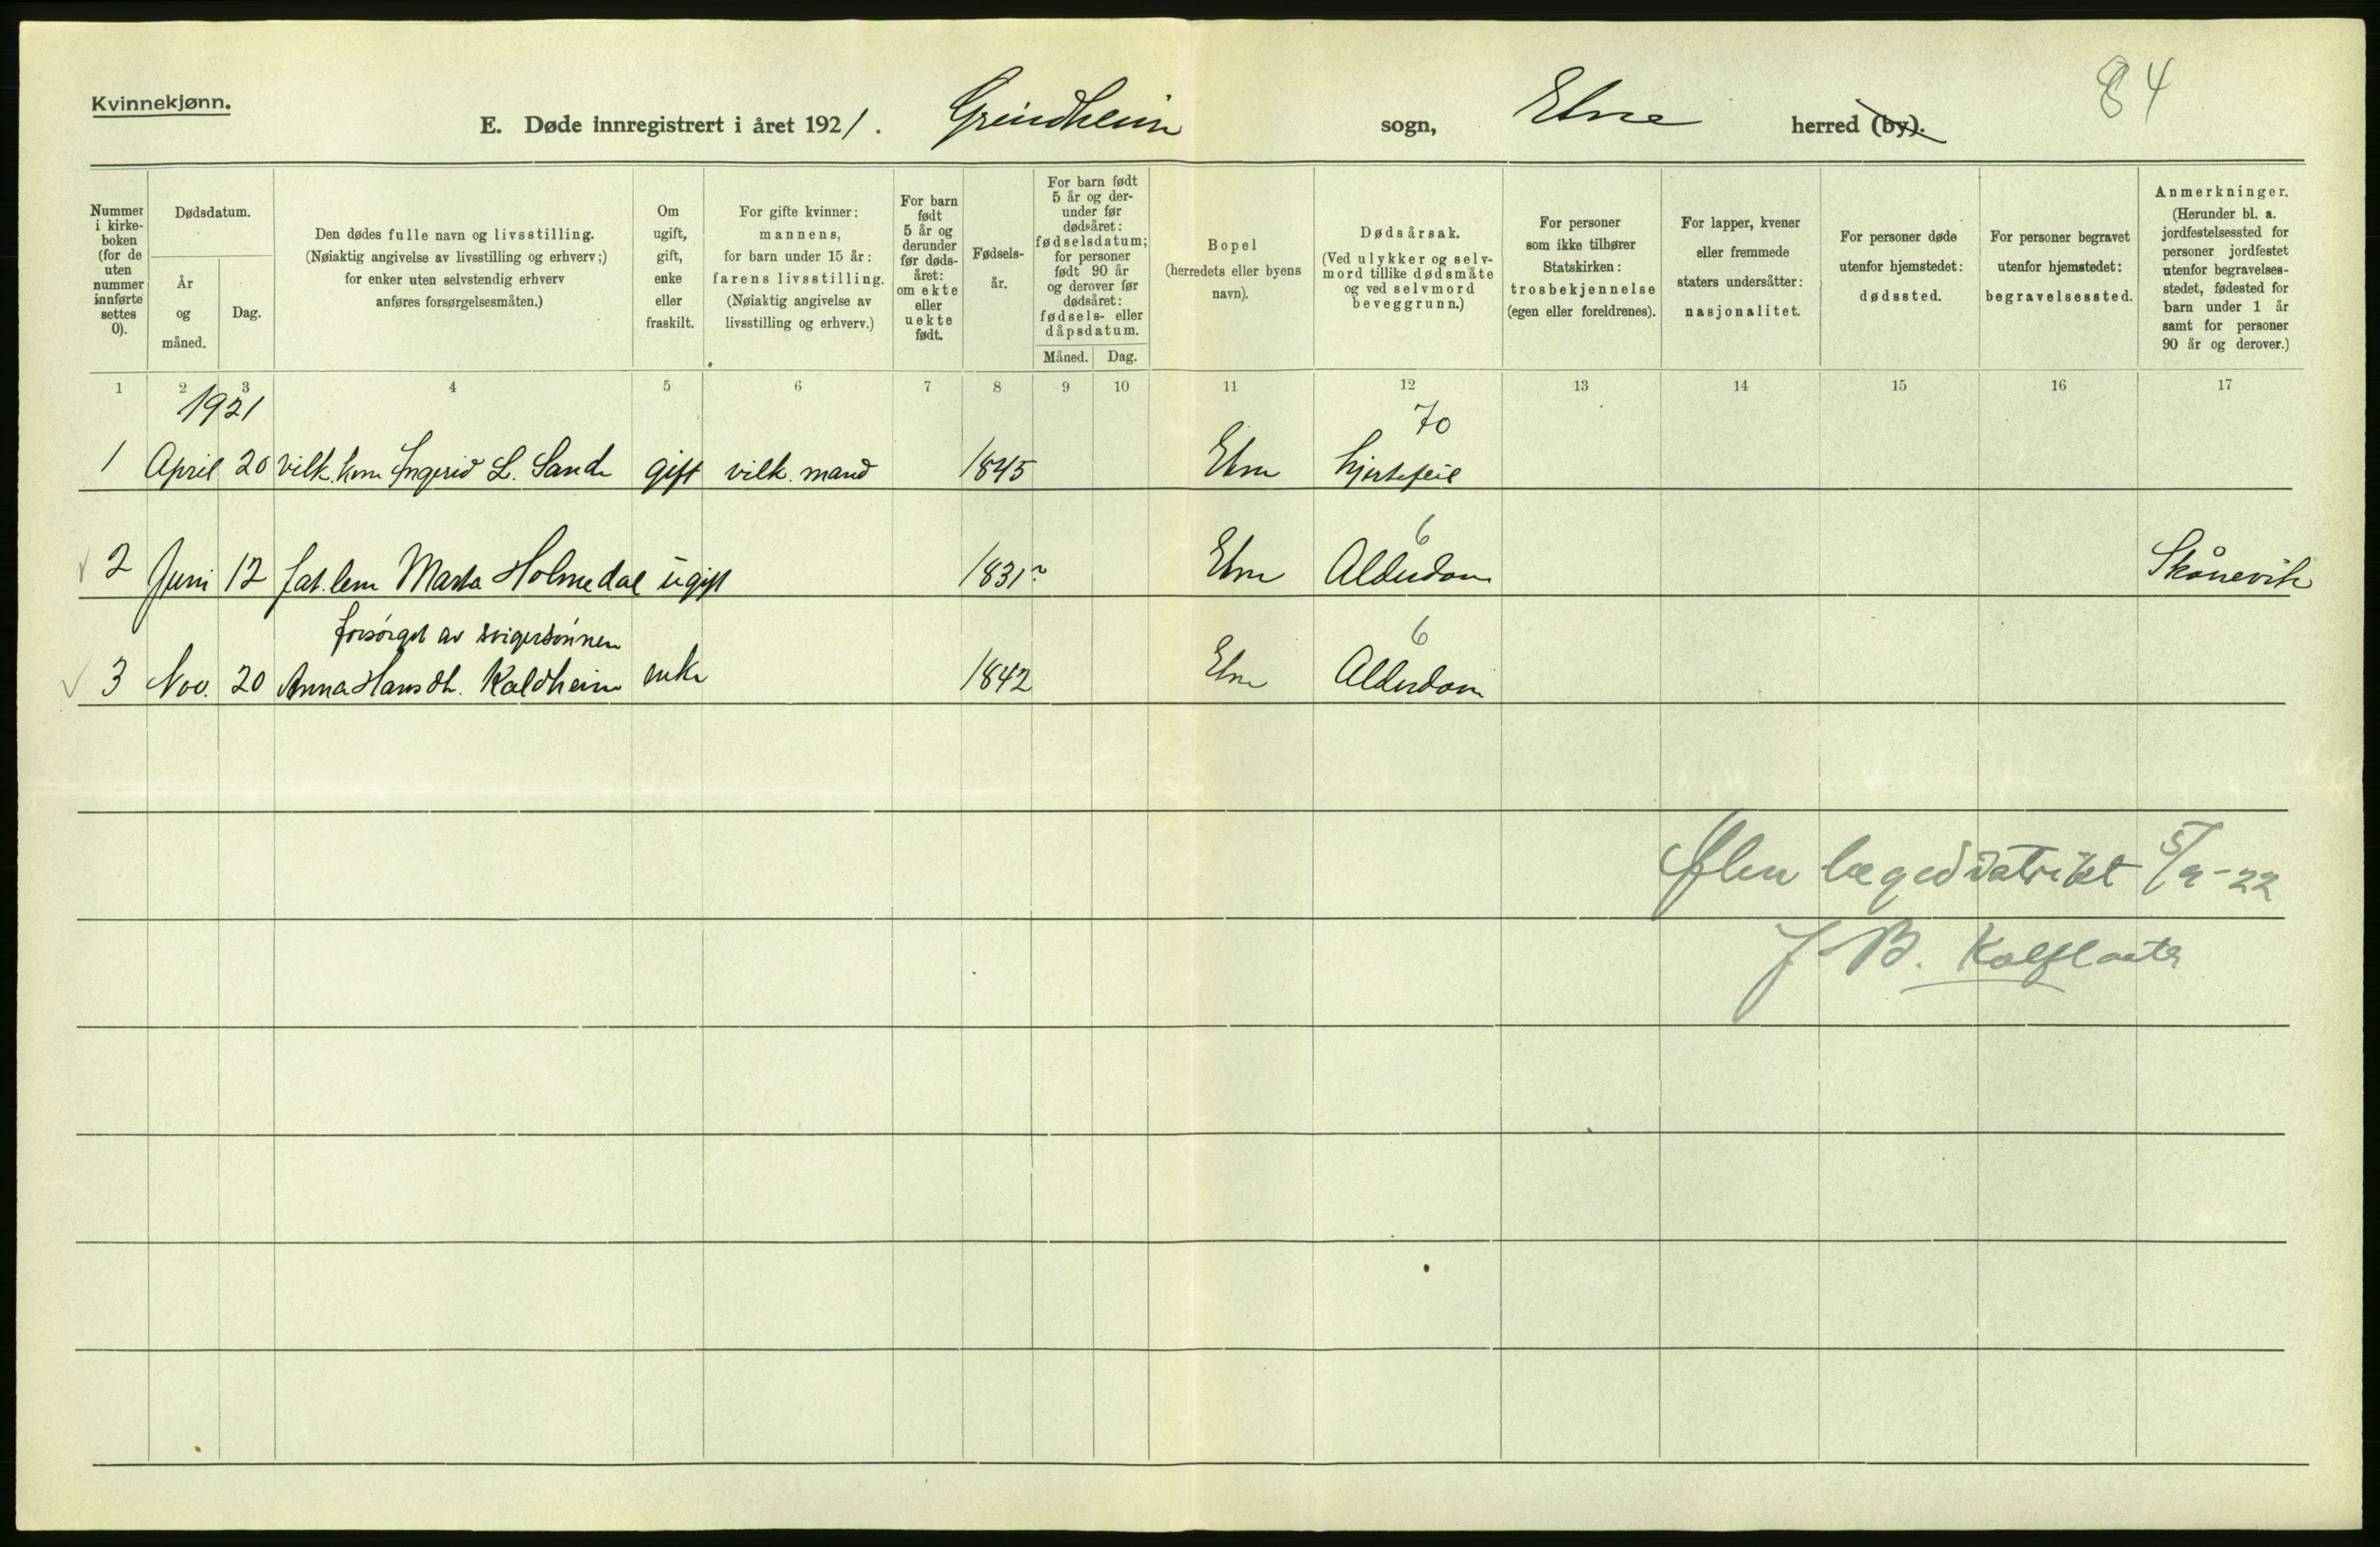 Kvinnekjønn.
84
E. Døde innregistrert i året 1921. Grindheim sogn, Etne herred (by).
Nummer i kirkeboken (for de uten nummer innførte settes 0).
Dødsdatum.
År og måned.
Dag.
Den dødes fulle navn og livsstilling.
(Nøiaktig angivelse av livsstilling og erhverv;)
for enker uten selvstendig erhverv
anføres forsørgelsesmåten.)
Om ugift, gift, enke eller fraskilt.
For gifte kvinner:
mannens,
for barn under 15 år:
farens livsstilling.
(Nøiaktig angivelse av
livsstilling og erhverv.)
For barn født 5 år og derunder før dødsåret: om ekte eller uekte født.
Fødselsår.
For barn født 5 år og derunder før dødsåret: fødselsdatum; for personer født 90 år og derover før dødsåret: fødsels- eller dåpsdatum.
Måned. Dag.
Bopel
(herredets eller byens
navn).
Dødsårsak.
(Ved ulykker og selvmord tillike dødsmåte
og ved selvmord
beveggrunn.)
For personer
som ikke tilhører
Statskirken:
trosbekjennelse
(egen eller foreldrenes).
For lapper, kvener
eller fremmede
staters undersåtter:
nasjonalitet.
For personer døde
utenfor hjemstedet:
dødssted.
For personer begravet
utenfor hjemstedet:
begravelsessted.
Anmerkninger.
(Herunder bl. a.
jordfestelsessted for
personer jordfestet
utenfor begravelsesstedet, fødested for
barn under 1 år
samt for personer
90 år og derover.)
1 2 3 4 5 6 7 8 9 10 11 12 13 14 15 16 17
1921
70
1 April 20 vilk. kone Ingerid L. Sande gift vilk. mand 1845 Etne hjertefeil
6
2 Juni 12 fat.lem Marta Holmedal ugift 1831? Etne Alderdom Skånevik
forsørget av svigersønnen
6
3 Nov. 20 Anna Hansdt. Kaldheim enke 1842 Etne Alderdom
Ølen lægedistrikt 5/9-22
J B. Kalflaate